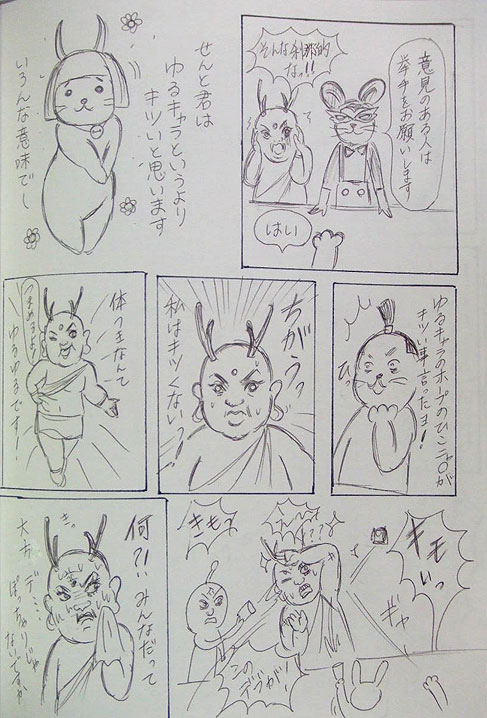 意見のある人は
挙手をお願いします
なっ!!
はい
せんと君は
ゆるキャラというより
キツいと思います
いろんな意味でし
キツい事言ったヨ!
ひっ
ちがうっ
私はキツくないっ!
体つきなんて
つまめるよ!
ゆるゆるです!!
キモ
いっ
ギャ
この
デブが!
何?!! みんなだって
デ…
ぽっちゃりじゃ
ないですか